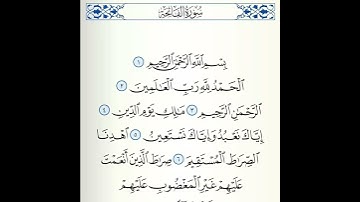 سُورَةُ الْفَاتِحَةِ
بِسْمِ ٱللَّهِ ٱلرَّحْمَٰنِ ٱلرَّحِيمِ ١
ٱلْحَمْدُ لِلَّهِ رَبِّ ٱلْعَٰلَمِينَ ٢
ٱلرَّحْمَٰنِ ٱلرَّحِيمِ ٣ مَٰلِكِ يَوْمِ ٱلدِّينِ ٤
إِيَّاكَ نَعْبُدُ وَإِيَّاكَ نَسْتَعِينُ ٥ ٱهْدِنَا
ٱلصِّرَٰطَ ٱلْمُسْتَقِيمَ ٦ صِرَٰطَ ٱلَّذِينَ أَنْعَمْتَ
عَلَيْهِمْ غَيْرِ ٱلْمَغْضُوبِ عَلَيْهِمْ